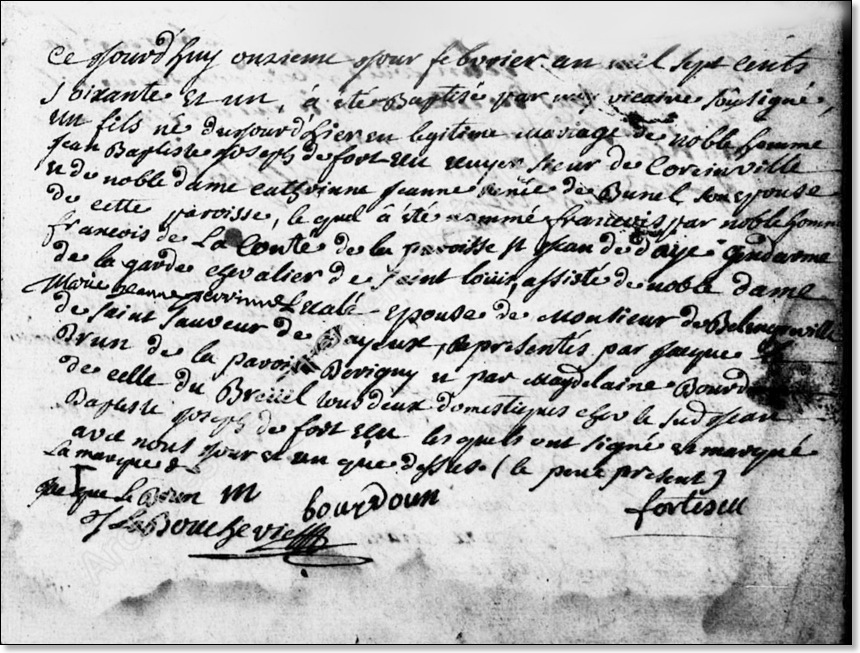 Ce jourd'huy onzieme jour febvrier an mil sept cents
soixante et un, à été Baptisé par moy vicaire soûsigné,
un fils né du jour d'hier en legitime mariage de noble homme
Jean Baptiste Joseph de fort Ecu Ecuyer sieur de
et de noble dame Catherinne Jeanne Renée de Bunel son epouse
de cette paroisse, le quel à été nommé françois par noble homme
françois de La Conté de la paroisse st Jean de d'aye gendarme
de la garde chevalier de saint louis, assisté de noble dame
Marie Jeanne perrinne epouse de Monsieur de
de saint sauveur de Bayeux, représentés par jacque Le
Brun de la paroisse Berigny et par Magdelaine Bourdoun
de celle du Breüil tous deux domestiques chez le sud jean
Baptiste joseph de fort Ecu les quels ont signé et marqué
avec nous jour et un que dessus (le pere present)
La marque de
jacque Le Brun M bourdoun fortescu
J LaBoucheVie